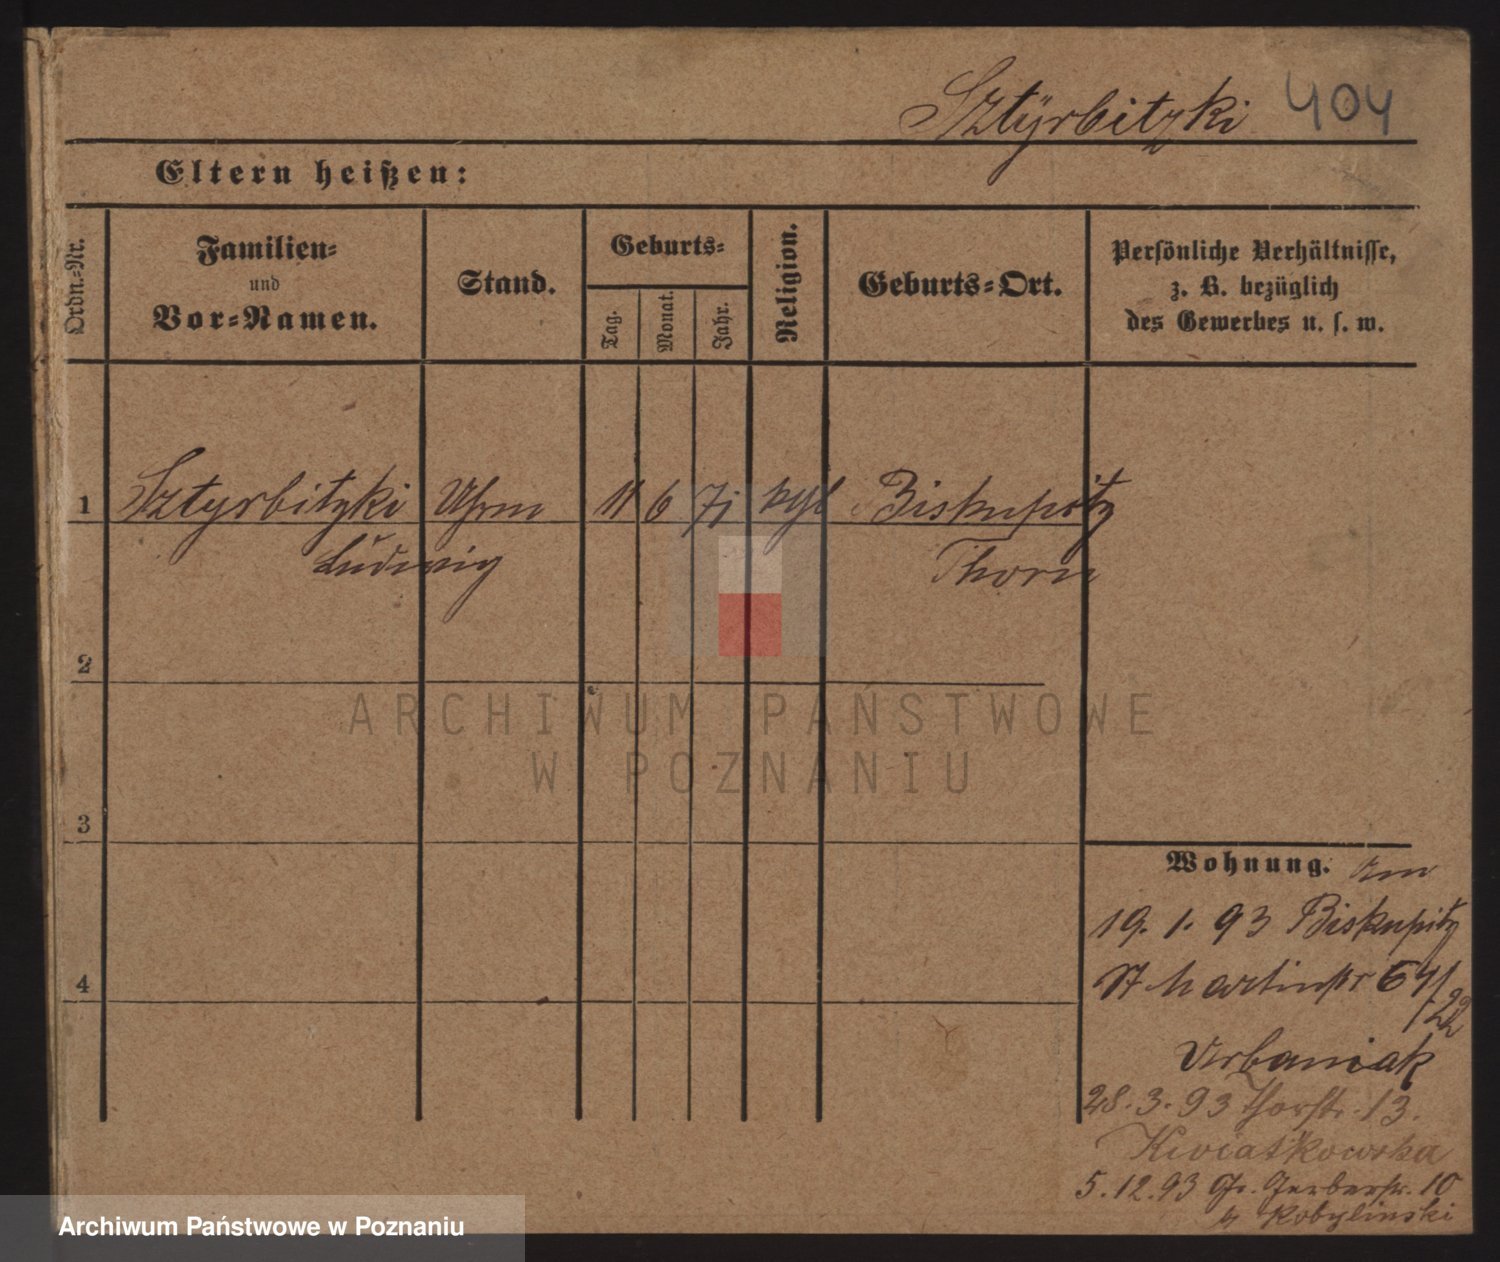 Sztÿrbitzki 404
Eltern heißen:
Ordn.=Nr.
Familien=
und
Vor=Namen.
Stand.
Geburts=
Tag.
Monat.
Jahr.
Religion.
Geburts=Ort.
Persönliche Verhältnisse,
z. B. bezüglich
des Gewerbes u. s. w.
1 Sztyrbitzki Uhrm 11 6 71 kthl Biskupitz
Ludwig Thorn
2
3
4
Wohnung. am
19. 1. 93 Biskupitz
St Martinstr 64/
/22
Urbaniak
28. 3. 93 Thorstr. 13.
Kwiatkowska
5. 12. 93 Gr. Gerberstr. 10
Kobylinski
ARCHIWUM PAŃSTWOWE
W POZNANIU
Archiwum Państwowe w Poznaniu